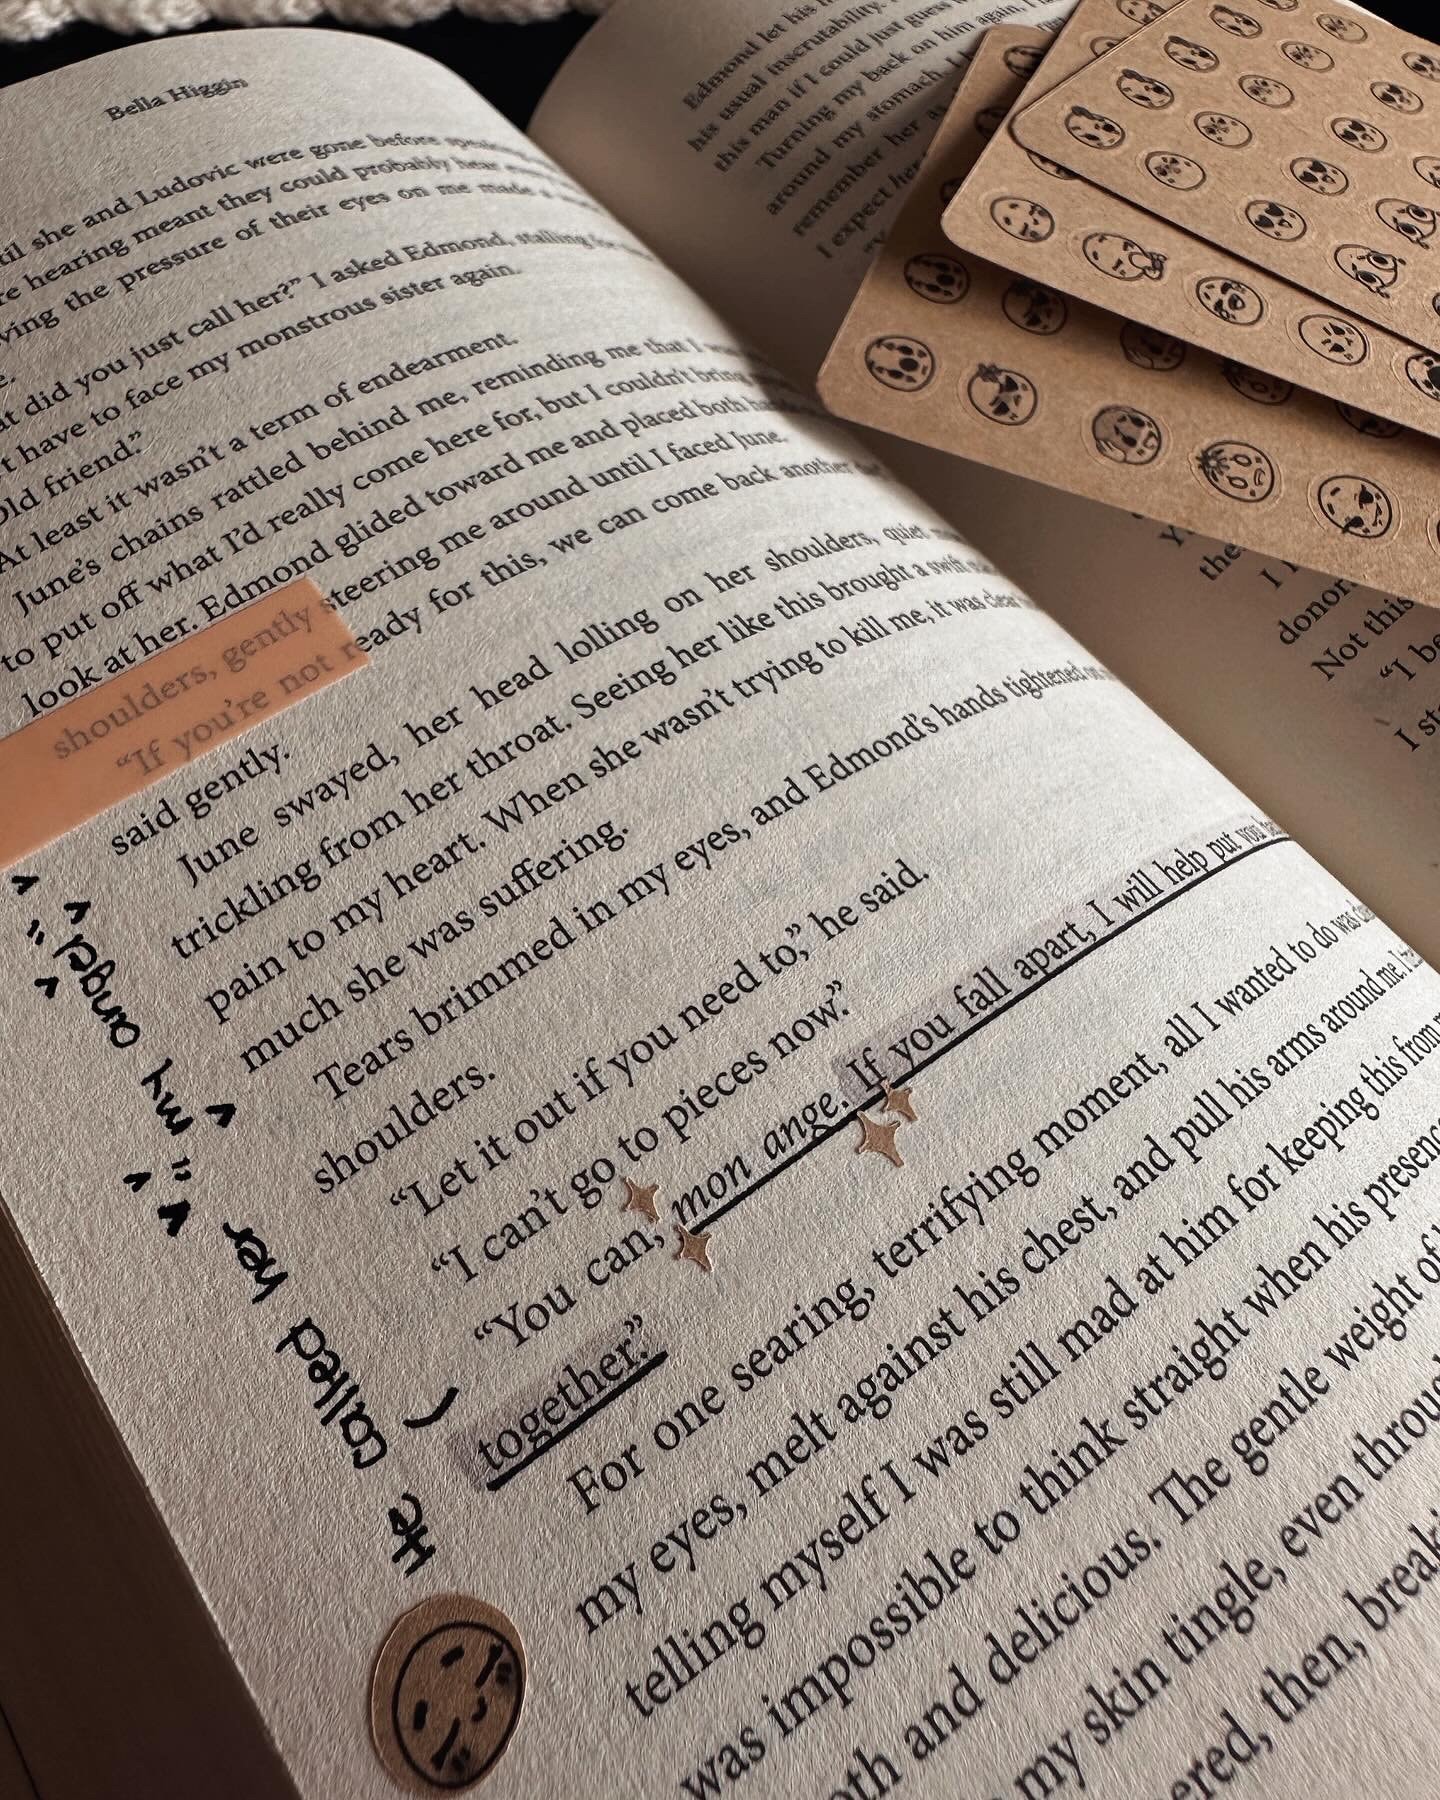 Bella Higgin
til she and Ludovic were gone before
re hearing meant they could probably hear
ving the pressure of their eyes on me made a
e.
at did you just call her?” I asked Edmond, stalling
t have to face my monstrous sister again.
Old friend.”
At least it wasn’t a term of endearment.
June’s chains rattled behind me, reminding me that I
to put off what I’d really come here for, but I couldn’t bring
look at her. Edmond glided toward me and placed both
shoulders, gently steering me around until I faced June.
“If you’re not ready for this, we can come back another
said gently.
June swayed, her head lolling on her shoulders, quiet
trickling from her throat. Seeing her like this brought a swift
pain to my heart. When she wasn’t trying to kill me, it was clear
much she was suffering.
Tears brimmed in my eyes, and Edmond’s hands tightened
shoulders.
“Let it out if you need to,” he said.
“I can’t go to pieces now.”
“You can, mon ange. If you fall apart, I will help put you
together.”
For one searing, terrifying moment, all I wanted to do was
my eyes, melt against his chest, and pull his arms around me. I
telling myself I was still mad at him for keeping this from
was impossible to think straight when his presence
oth and delicious. The gentle weight of
my skin tingle, even through
ered, then, break
He called her "my angel"
Edmond let his
his usual inscrutability.
this man if I could just guess
Turning my back on him again, I
around my stomach.
remember her as
I expect her
the
I
donor
Not this
“I be
I sta